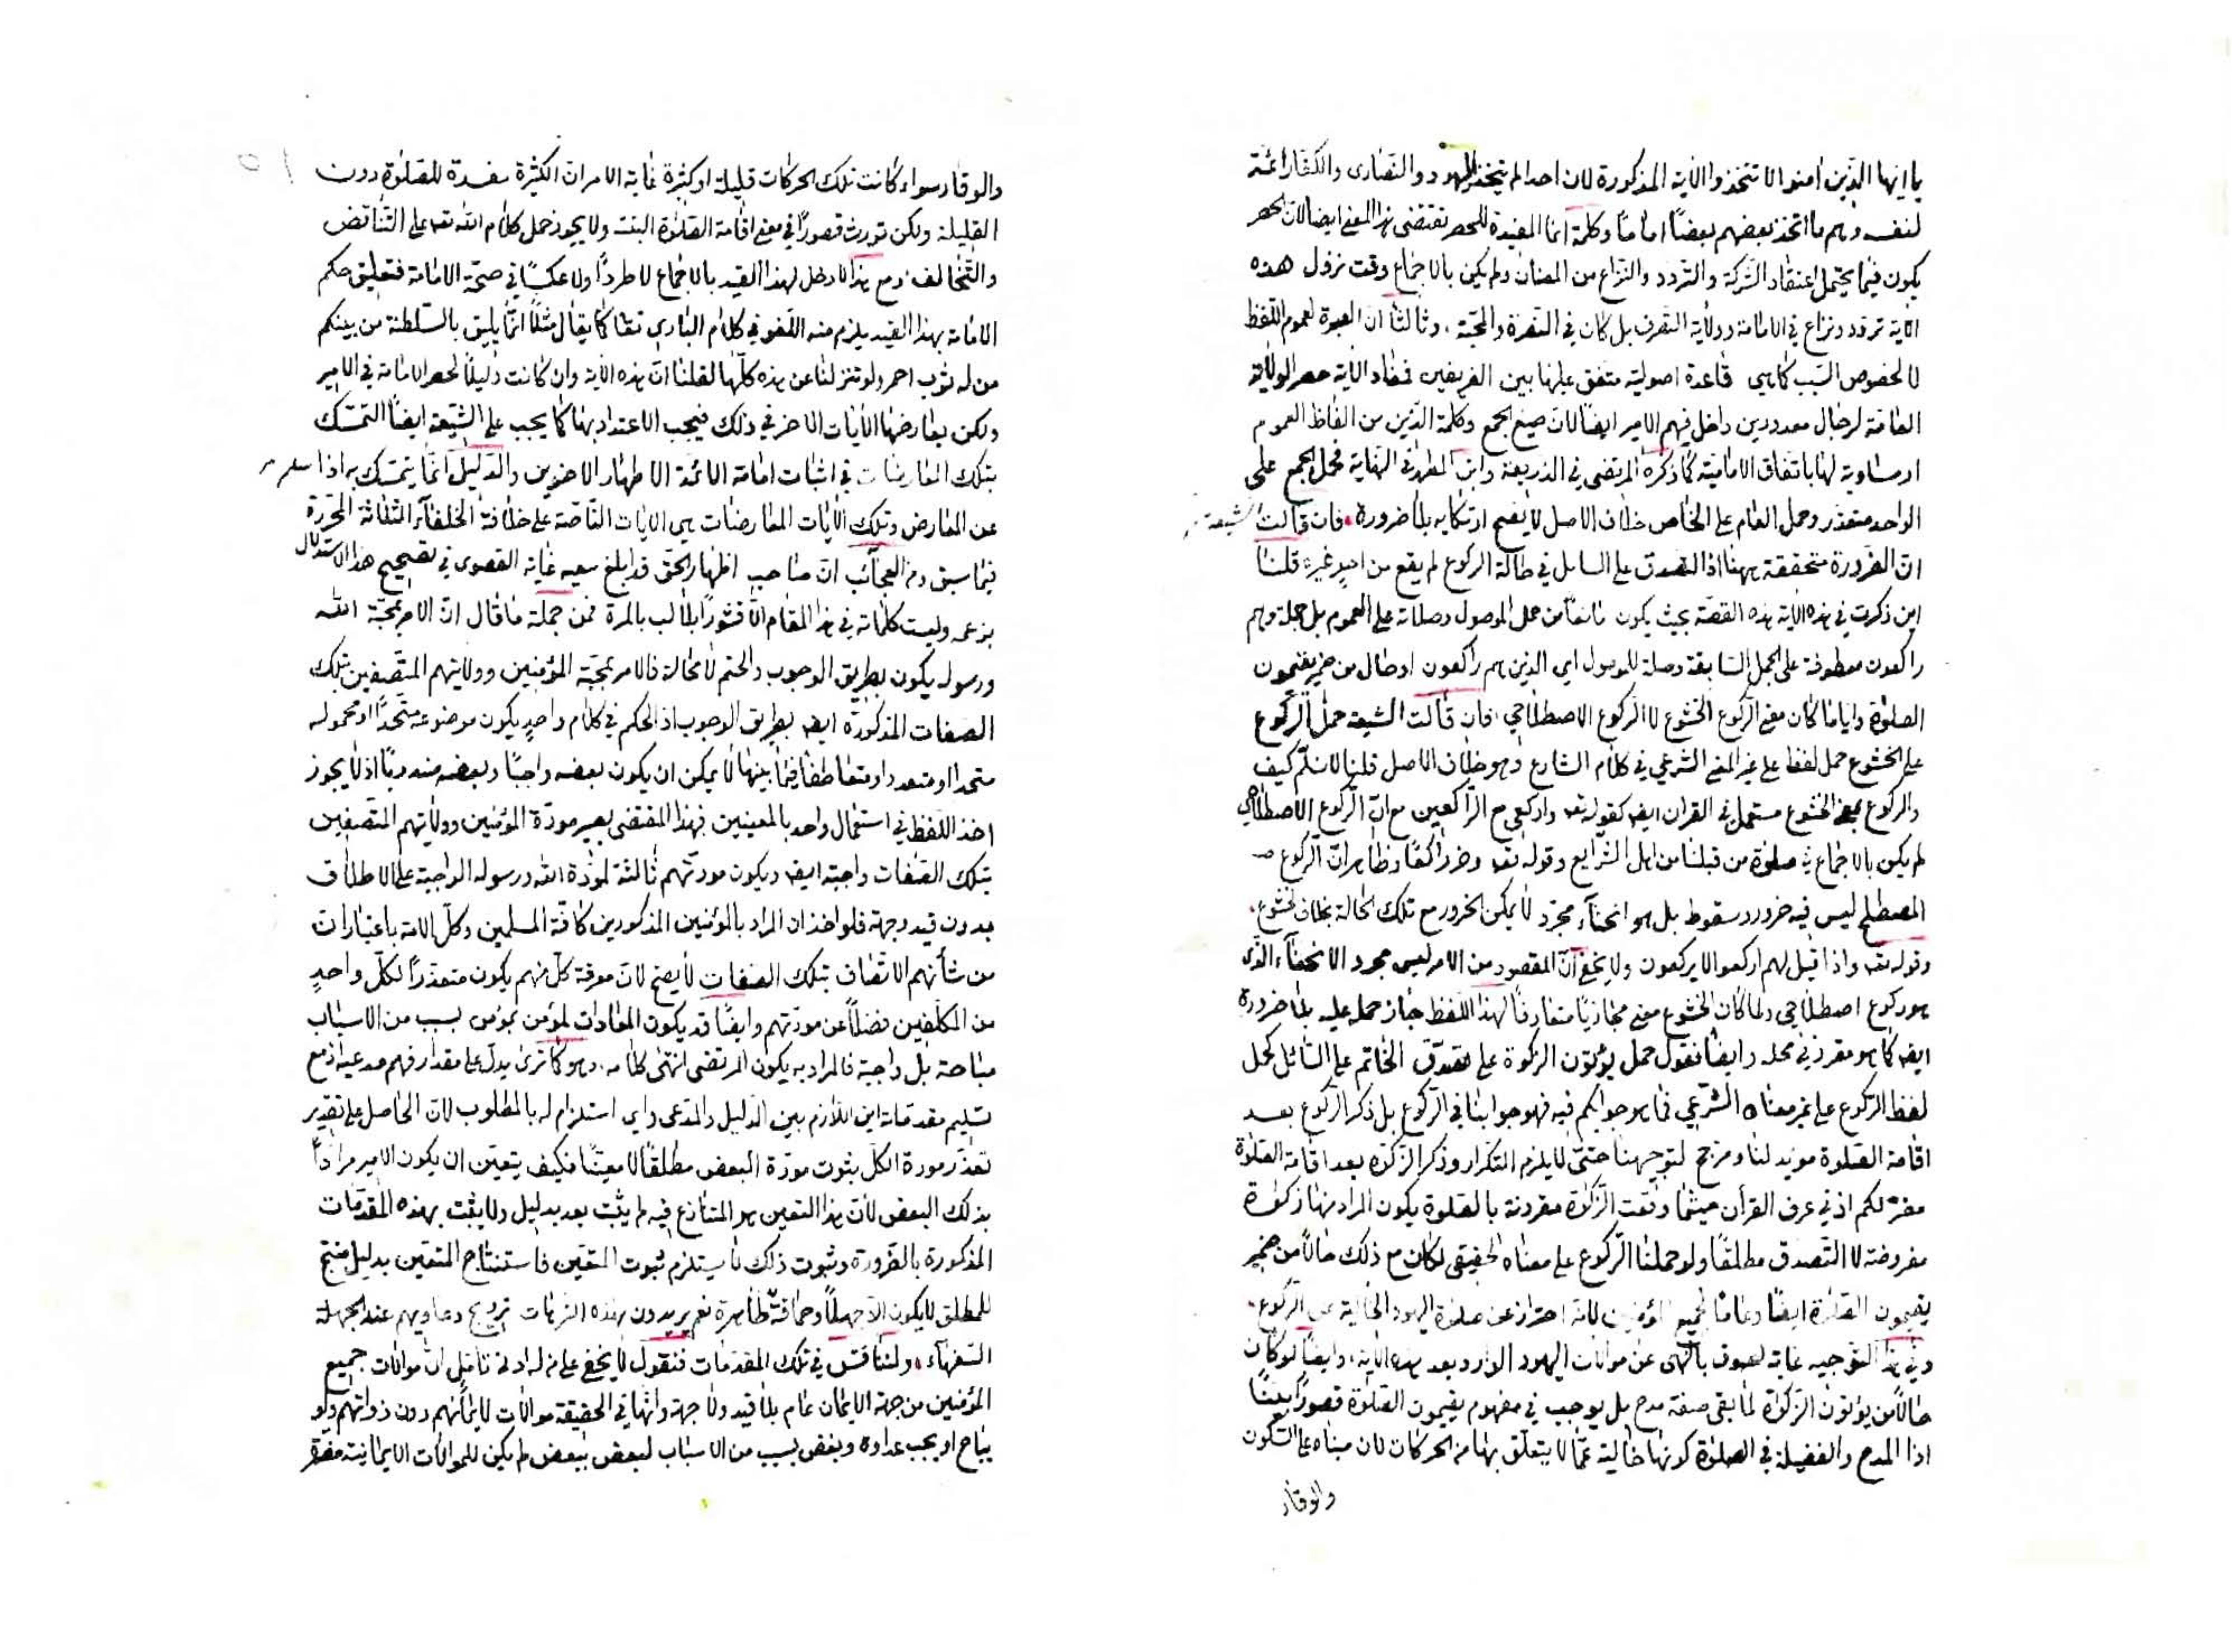 يا ايها الذين امنوا لا تتخذوا الآية المذكورة لان احدا لم يتخذ اليهود والنصارى والكفار ائمة
لنفسه وهم ما اتخذ بعضهم بعضًا اماما وكلمة انما المفيدة للحصر تقتضى هذا المعنى ايضا لان الحصر
يكون فيما يحتمل اعتقاد الشركة والتردد والنزاع من المظان ولم يكن بالاجماع وقت نزول هذه
الآية تردد ونزاع في الامامة وولاية التصرف بل كان في النصرة والمحبة، وثالثا ان العبرة لعموم اللفظ
لا لخصوص السبب كما هي قاعدة اصولية متفق عليها بين الفريقين فمفاد الآية حصر الولاية
العامة لرجال معدودين داخل فيهم الامير ايضا لان صيغ الجمع وكلمة الذين من الفاظ العموم
او مساوية لها باتفاق الامامية كما ذكره المرتضى في الذريعة وابن المطهر في النهاية فحمل الجمع على
الواحد متعذر وحمل العام على الخاص خلاف الاصل لا يصح ارتكابه بلا ضرورة، فان قالت الشيعة
ان الضرورة متحققة ههنا اذ التصدق على السائل في حالة الركوع لم يقع من احد غيره قلنا
اين ذكرت في هذه الآية هذه القصة بحيث يكون مانعا من حمل الموصول وصلاته على العموم بل جملة وهم
راكعون معطوفة على الجمل السابقة وصلة للموصول اي الذين هم راكعون او حال من ضمير يقيمون
الصلوة وايا ما كان معنى الركوع الخشوع لا الركوع الاصطلاحي، فان قالت الشيعة حمل الركوع
على الخشوع حمل لفظ على غير المعنى الشرعي في كلام الشارع وهو خلاف الاصل قلنا لا نسلم كيف
والركوع بمعنى الخشوع مستعمل في القران ايضا كقوله تعه واركعى مع الراكعين مع ان الركوع الاصطلاحي
لم يكن بالاجماع في صلوة من قبلنا من اهل الشرايع وقوله تعه وخر راكعا وظاهر ان الركوع
المصطلح ليس فيه خرور وسقوط بل هو انحناء مجرد لا يمكن الخرور مع تلك الحالة بخلاف الخشوع،
وقوله تعه واذا قيل لهم اركعوا لا يركعون ولا يخفى ان المقصود من الامر ليس مجرد الانحناء الذي
هو ركوع اصطلاحي ولما كان الخشوع معنى مجازيا متعارفا لهذا اللفظ جاز حمله عليه بلا ضرورة
ايضا كما هو مقرر في محله وايضا نقول حمل يؤتون الزكوة على تصدق الخاتم على السائل كحمل
لفظ الركوع على غير معناه الشرعي فما هو جوابكم فيه فهو جوابنا في الركوع بل ذكر الركوع بعد
اقامة الصلوة مؤيد لنا ومرجح لتوجيهنا حتى لا يلزم التكرار وذكر الزكوة بعد اقامة الصلوة
مضر لكم اذ في عرف القرآن حيثما وقعت الزكوة مقرونة بالصلوة يكون المراد منها زكوة
مفروضة لا التصدق مطلقا ولو حملنا الركوع على معناه الحقيقي لكان مع ذلك حالا من ضمير
يقيمون الصلوة ايضا وعاما لجميع المؤمنين لانه احتراز عن صلوة اليهود الخالية عن الركوع،
وفي هذا التوجيه غاية لصوق بالنهى عن موالات اليهود الوارد بعد هذه الآية، وايضا لو كان
حالا من يؤتون الزكوة لما بقى صفة مدح بل يوجب في مفهوم يقيمون الصلوة قصورا بينا
اذ المدح والفضيلة في الصلوة كونها خالية عما لا يتعلق بها من الحركات لان مبناه على السكون
والوقار
والوقار سواء كانت تلك الحركات قليلة او كثيرة غاية الامر ان الكثيرة مفسدة للصلوة دون
القليلة ولكن تورث قصورا في معنى اقامة الصلوة البتة ولا يجوز حمل كلام الله تعه على التناقض
والتخالف، ومع هذا لا دخل لهذا القيد بالاجماع لا طردا ولا عكسا في صحة الامامة فتعليق حكم
الامامة بهذا القيد يلزم منه اللغو في كلام الباري تعا كما يقال مثلا انما يليق بالسلطنة من بينكم
من له ثوب احمر ولو تنزلنا عن هذه كلها لقلنا ان هذه الآية وان كانت دليلا لحصر الامامة في الامير
ولكن يعارضها الآيات الاخر في ذلك فيجب الاعتداد بها كما يجب على الشيعة ايضا التمسك
بتلك المعارضات في اثبات امامة الائمة الاطهار الاخرين والدليل انما يتمسك به اذا سلم
عن المعارض وتلك الآيات المعارضات هي الآيات الناصة على خلافة الخلفاء الثلاثة المحررة
فيما سبق ومن العجائب ان صاحب اظهار الحق قد ابلغ سعيه غاية القصوى في تصحيح هذا الاستدلال
بزعمه وليست كلماته في هذا المقام الا قشورا بلا لب بالمرة فمن جملة ما قال ان الامر بمحبة الله
ورسوله يكون بطريق الوجوب والحتم لا محالة فالامر بمحبة المؤمنين وولايتهم المتصفين بتلك
الصفات المذكورة ايضا بطريق الوجوب اذ الحكم في كلام واحد يكون موضوعه متحدا او محموله
متحدا او متعددا ومتعاطفا فيما بينها لا يمكن ان يكون بعضه واجبا وبعضه مندوبا اذ لا يجوز
اخذ اللفظ في استعمال واحد بالمعنيين فهذا المقتضى يصير مودة المؤمنين وولايتهم المتصفين
بتلك الصفات واجبة ايضا ويكون مودتهم ثالثة لمودة الله ورسوله الواجبة على الاطلاق
بدون قيد وجهة فلو اخذ ان المراد بالمؤمنين المذكورين كافة المسلمين وكل الامة باعتبار ان
من شأنهم الاتصاف بتلك الصفات لا يصح لان معرفة كل منهم يكون متعذرا لكل واحد
من المكلفين فضلا عن مودتهم وايضا قد يكون المعادات لمؤمن بمؤمن بسبب من الاسباب
مباحة بل واجبة فالمراد به يكون المرتضى انتهى كلامه، وهو كما ترى يدل على مقدار فهم مدعيه اذ مع
تسليم مقدماته اين اللازم بين الدليل والمدعى واي استلزام له بالمطلوب لان الحاصل على تقدير
تعذر مودة الكل ثبوت مودة البعض مطلقا لا معينا فكيف يتعين ان يكون الامير مرادا
بذلك البعض لان هذا التعين هو المتنازع فيه لم يثبت بعد بدليل ولا يثبت بهذه المقدمات
المذكورة بالضرورة وثبوت ذلك لا يستلزم ثبوت المتعين فاستنتاج المتعين بدليل منتج
للمطلق لا يكون الا جهلا وحماقة ظاهرة نعم يريدون بهذه الترهات ترويج دعاويهم عند الجهلة
السفهاء، ولنناقش في تلك المقدمات فنقول لا يخفى على من له ادنى تأمل ان موالات جميع
المؤمنين من جهة الايمان عام بلا قيد ولا جهة وانها في الحقيقة موالات لايمانهم دون ذواتهم ولو
يباح او يجب عداوة وبغض بسبب من الاسباب لبعض ببعض لم يكن للموالات الايمانية مضرة